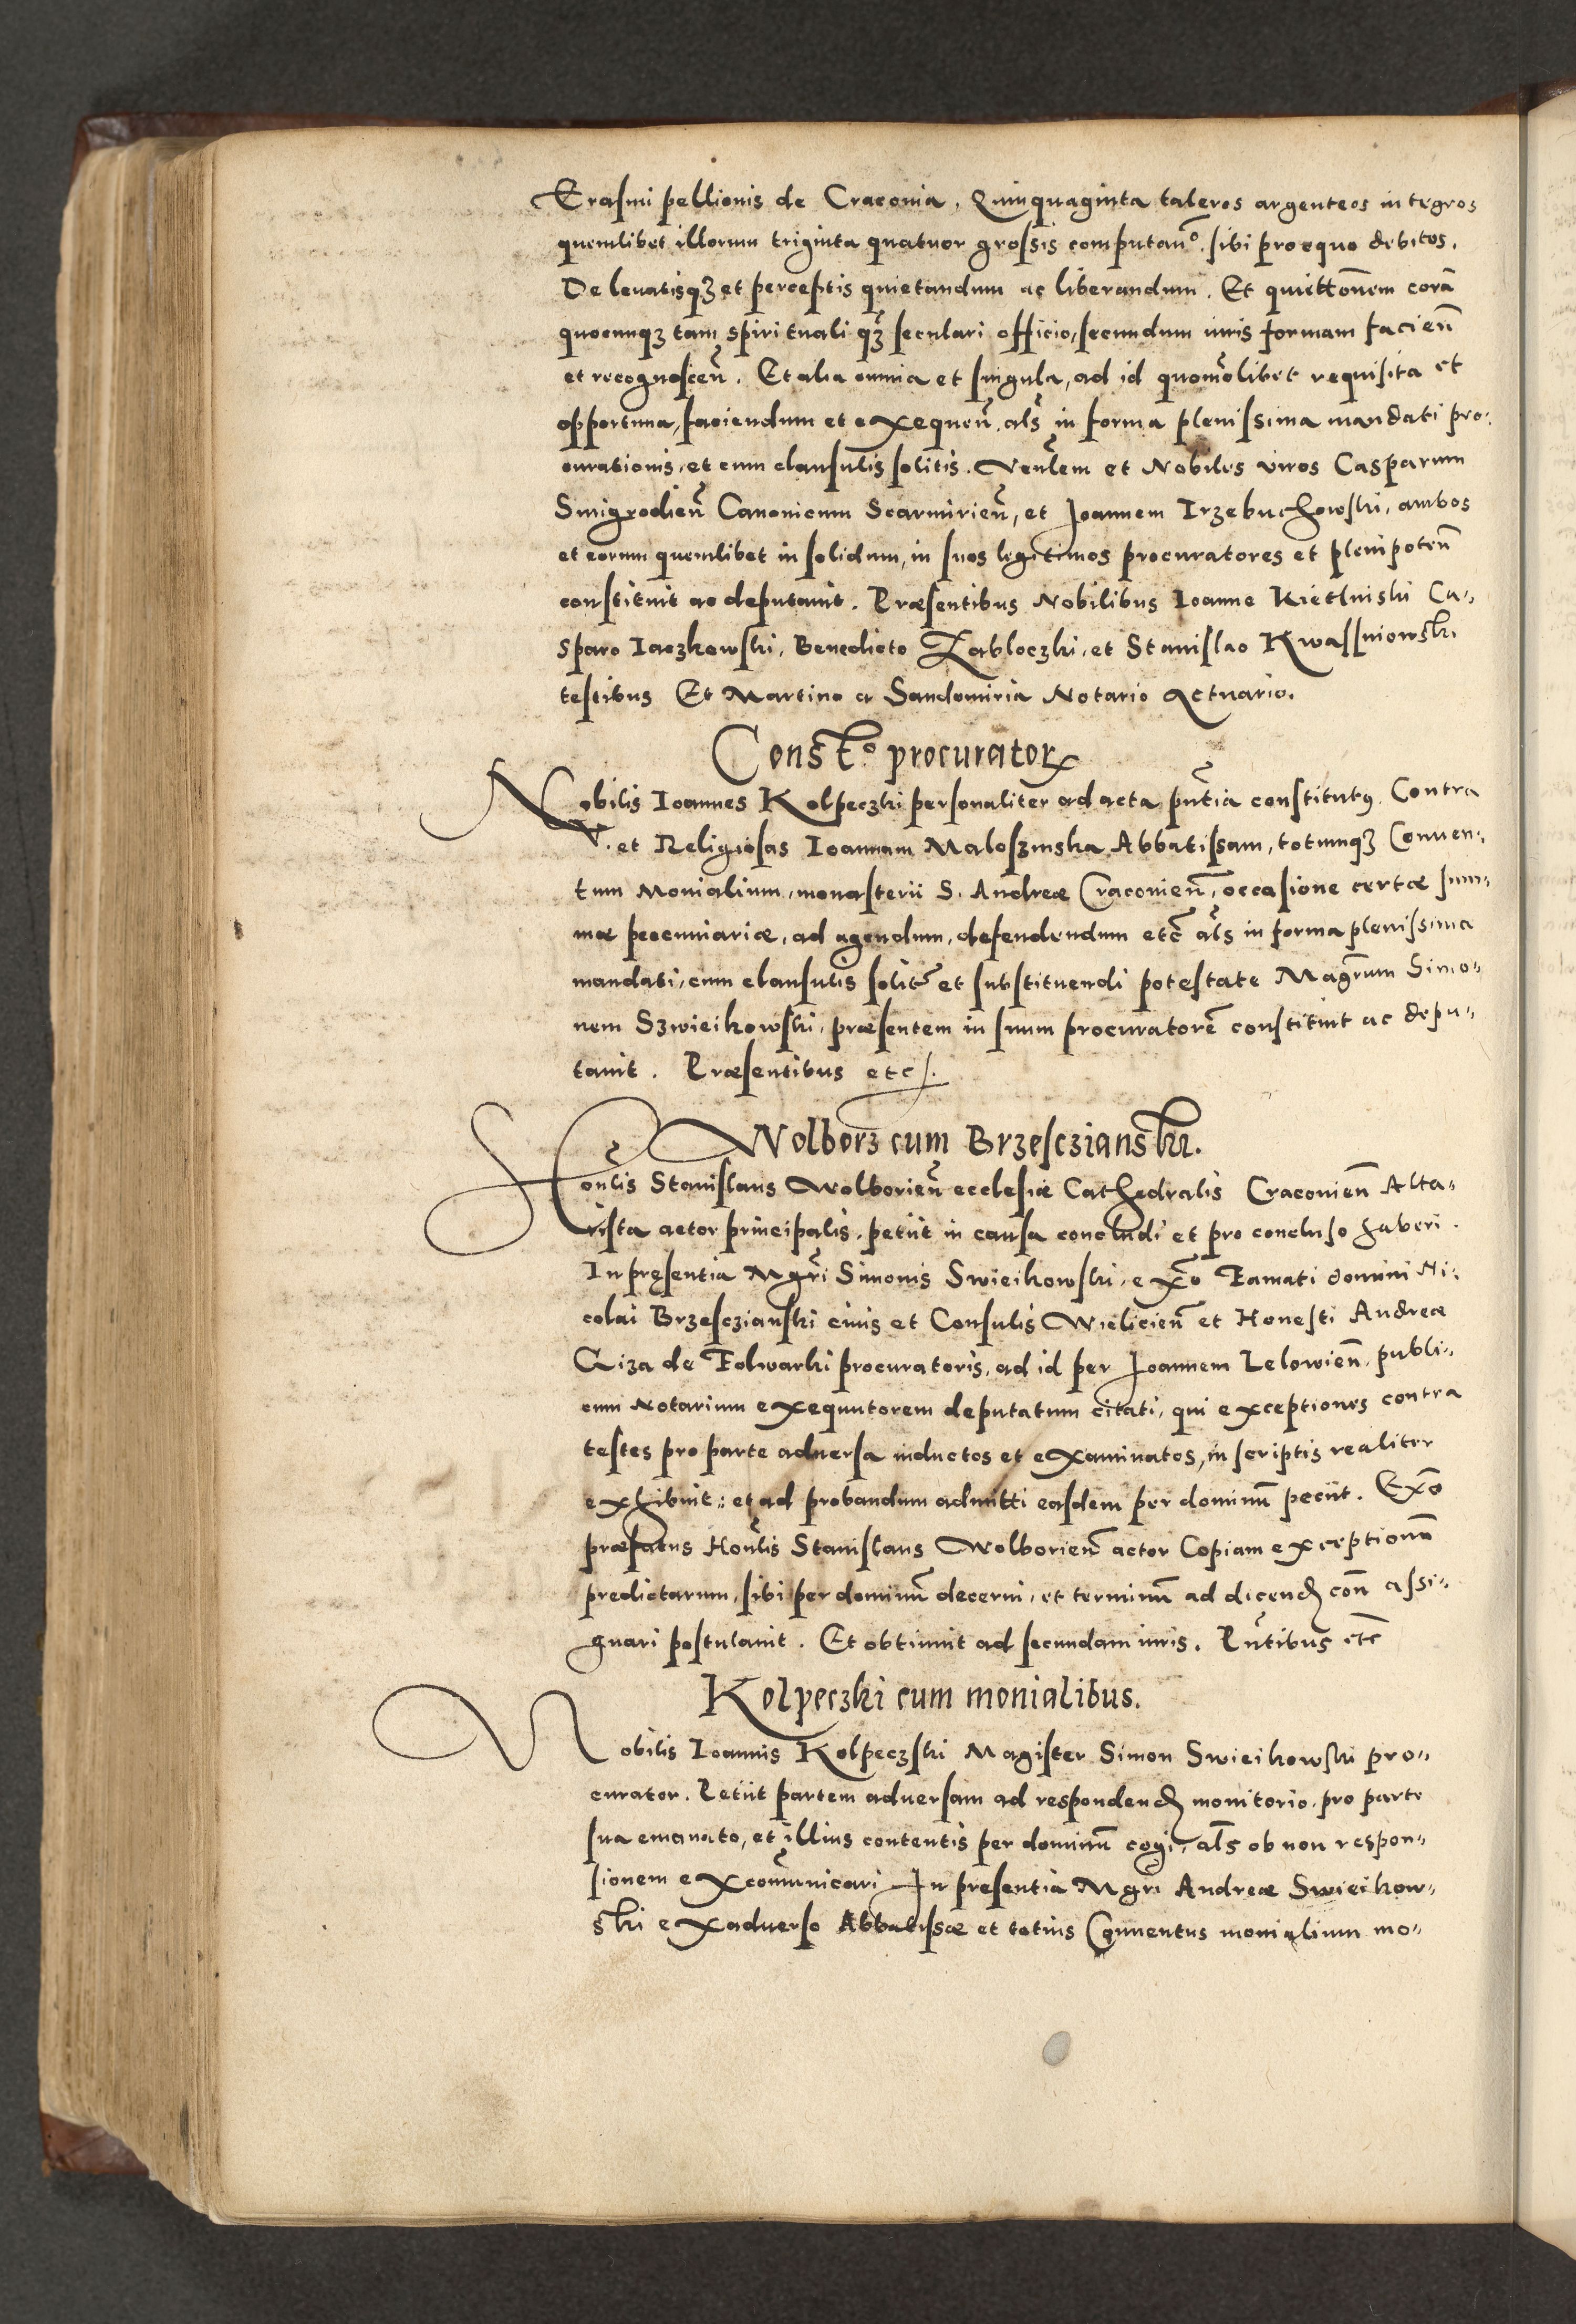 Erasmi pellionis de Craconia, Quinquaginta taleros argenteos integros
quemlibet illorum triginta quatuor grossis computan̄º sibi pro equo debitos.
De leuatisqȝ et perceptis quietandum ac liberandum. Et quittōnem corā
quocunqȝ tam spirituali qȝ̄ seculari officio, secundum iuris formam facien̄
et recognoscen̄. Et alia omnia et singula, ad id quomōlibet requisita et
opportuna, faciendum et exequen̄, als̄ in forma plenissima mandati pro-
curationis, et cum clausulis solitis. Venl̄em et Nobiles viros Casparum
Smigrodien̄ Canonicum Scarmirien̄, et Joannem Irzebuchowski, ambos
et eorum quemlibet in solidum, in suos legitimos procuratores et plenipoten̄
constituit ac deputauit. Præsentibus Nobilibus Ioanne Kietlniski Ca-
sparo Iaczkowski, Benedicto Zabloczki, et Stanislao Kwassniowski
testibus Et Martino a Sandomiria Notario Actuario.
Constº procurator
Nobilis Ioannes Kolpeczki personaliter ad acta pn̄tia constitutꝰ. Contra
V. et Religiosas Ioannam Maloszinska Abbatissam, totumqȝ Conuen-
tum Monialium, monasterii S. Andreæ Craconien̄, occasione certæ sum-
mæ pecuniariæ, ad agendum, defendendum etc̄ als̄ in forma plenissima
mandati, cum clausulis solit̄ et substituendi potestate Magr̄um Simo-
nem Szwieikowski, præsentem in suum procuratorē constituit ac depu-
tauit. Præsentibus etc.
Wolborz cum Brzesczianski.
Honl̄is Stanislaus Wolborien̄ ecclesiæ Cathedralis Craconien̄ Alta-
rista actor principalis, petiit in causa concludi et pro concluso haberi.
In pręsentia Mgr̄i Simonis Swieikowski, exōo Famati domini Ni-
colai Brzesczianski ciuis et Consulis Wielicien̄ et Honesti Andreæ
Giza de Folwarki procuratoris, ad id per Joannem Lelowien̄ publi-
cum Notarium exequutorem deputatum citati, qui exceptiones contra
testes pro parte aduersa inductos et examinatos, in scriptis realiter
exhibuit: et ad probandum admitti easdem per dominū peciit. Exōo
præfatus Honl̄is Stanislaus Wolborien̄ actor Copiam exceptionū
predictarum, sibi per dominū decerni, et terminū ad dicend con̄ assi-
gnari postulauit. Et obtinuit ad secundam iuris. Pn̄tibus etc̄
Kolpeczki cum monialibus.
Nobilis Ioannis Kolpeczski Magister Simon Swieikowski pro-
curator. Petiit partem aduersam ad respondend monitorio, pro parte
sua emanato, et illius contentis per dominū cogi, als̄ ob non respon-
sionem excōmunicari In presentia Mgr̄i Andreæ Swieikow-
ski exaduerso Abbatissæ et totius Conuentus monialium mo-